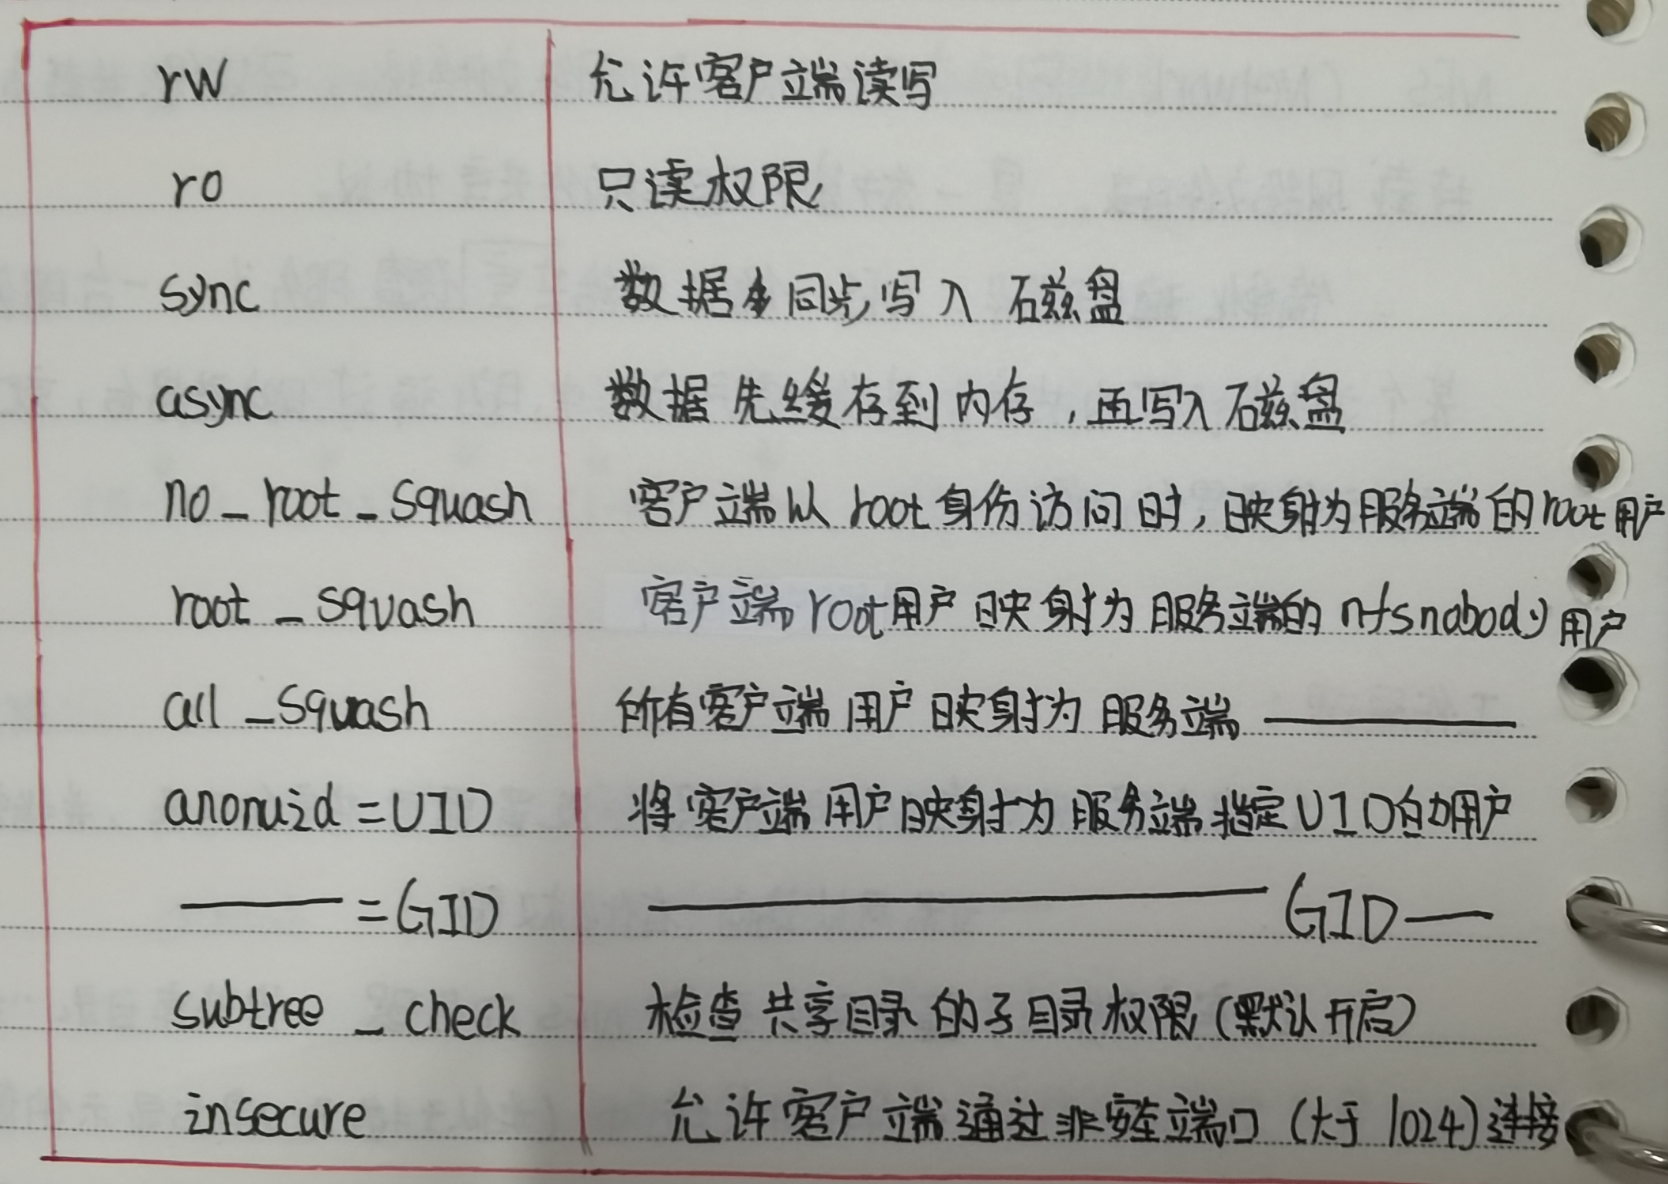 rw 允许客户端读写
ro 只读权限
sync 数据同步写入 磁盘
async 数据先缓存到内存，再写入磁盘
no_root_squash 客户端以root身份访问时，映射为服务端的root用户
root_squash 客户端root用户映射为服务端的nfsnobody用户
all_squash 所有客户端用户映射为服务端 ————
anonuid=UID 将客户端用户映射为服务端指定UID的用户
————=GID ————————GID——
subtree_check 检查共享目录的子目录权限(默认开启)
insecure 允许客户端通过非安全端口(大于1024)连接